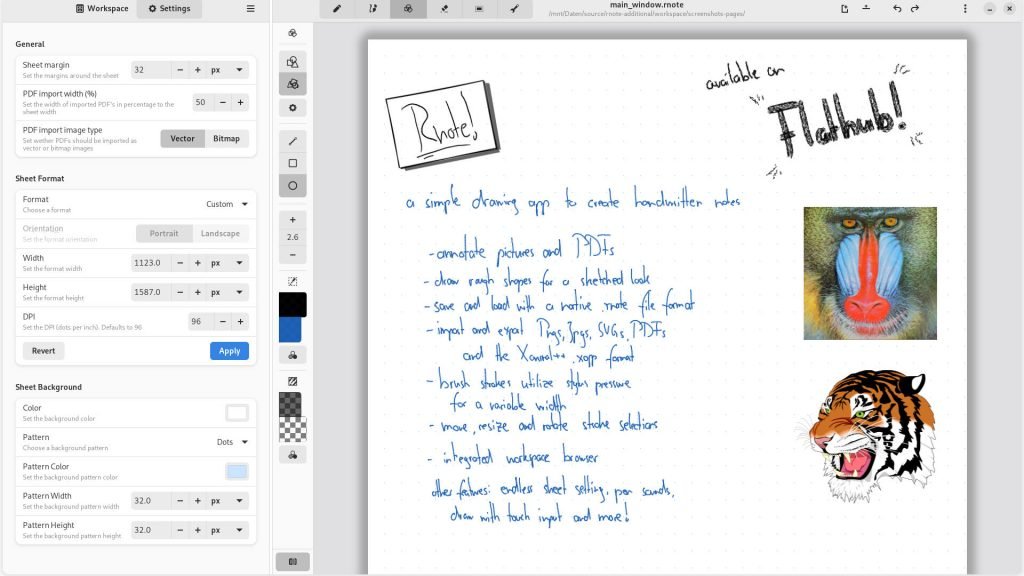 Workspace
Settings
General
Sheet margin
Set the margins around the sheet
32
px
PDF import width (%)
Set the width of imported PDF's in percentage to the
sheet width
50
PDF import image type
Set wether PDFs should be imported as
vector or bitmap images
Vector
Bitmap
Sheet Format
Format
Choose a format
Custom
Orientation
Set the format orientation
Portrait
Landscape
Width
Set the format width
1123.0
px
Height
Set the format height
1587.0
px
DPI
Set the DPI (dots per inch). Defaults to 96
96
Revert
Apply
Sheet Background
Color
Set the background color
Pattern
Choose a background pattern
Dots
Pattern Color
Set the background pattern color
Pattern Width
Set the background pattern width
32.0
px
Pattern Height
Set the background pattern height
32.0
px
2.6
main_window.rnote
/mnt/Daten/source/rnote-additional/workspace/screenshots-pages/
Rnote!
available on
Flathub!
a simple drawing app to create handwritten notes
- annotate pictures and PDFs
- draw rough shapes for a sketched look
- save and load with a native .rnote file format
- import and export Pngs, Jpgs, SVGs, PDFs
and the Xournal++ .xopp format
- brush strokes utilize stylus pressure
for a variable width
- move, resize and rotate stroke selections
- integrated workspace browser
other features: endless sheet setting, pen sounds,
draw with touch input and more!